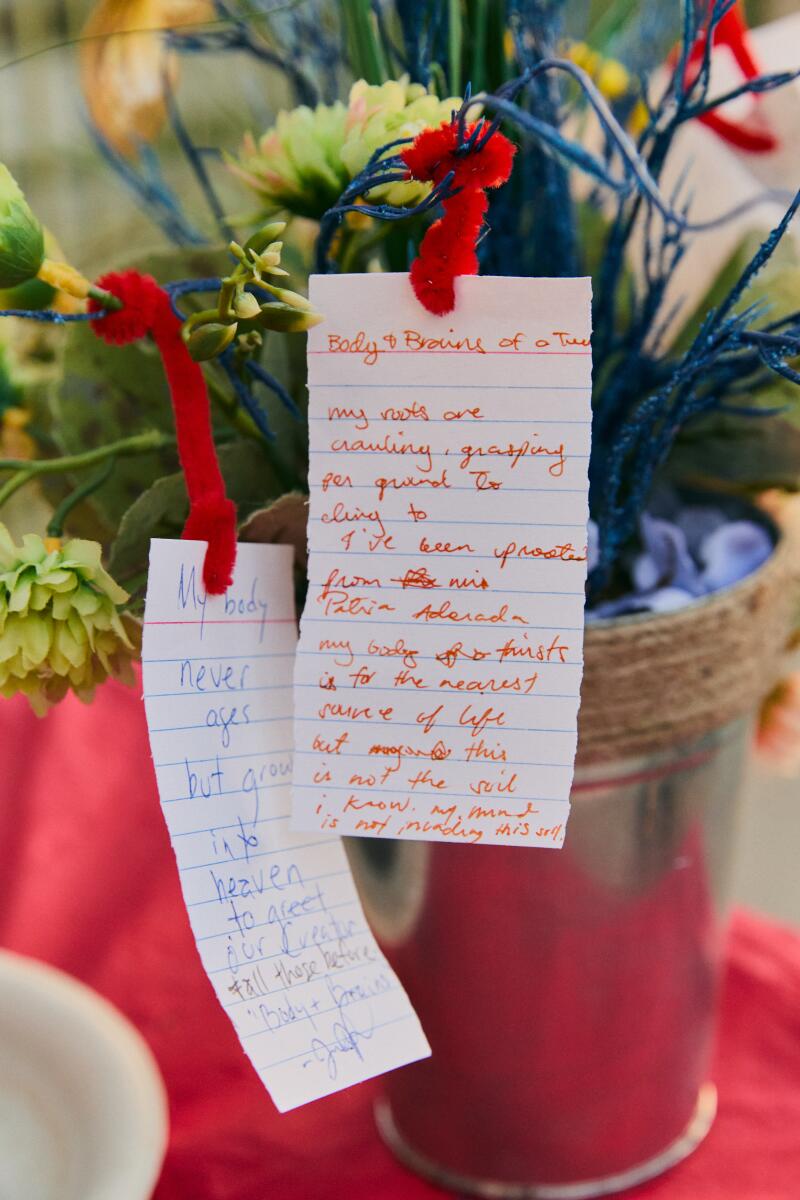 Body & Brains of a Tree
my roots are
crawling, grasping
for ground to
cling to
I've been uprooted
from mi
Patria Adorada
my body thirsts
for the nearest
source of life
but this
is not the soil
i know. my mind
is not invading this soil.
My body
never
ages
but grow
into
heaven
to greet
our Creator
+ all those before
"Body + Brains